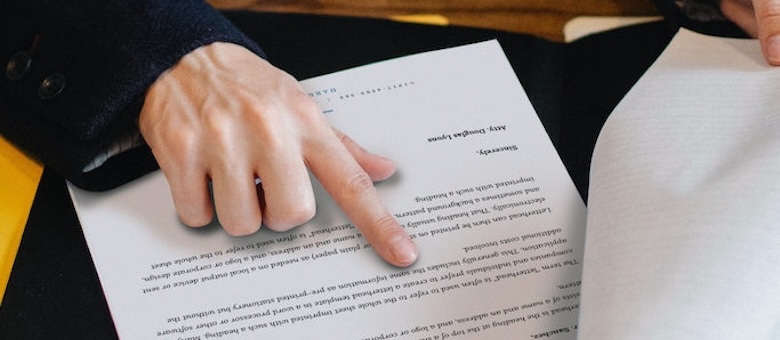 Sanchez,
is the heading at the top of a
of a name and an address, and a logo or corporate
The term "letterhead" is often used to refer to the whole sheet imprinted with such a heading. Many
companies and individuals prefer to create a letterhead template in a word processor or other software
application. This generally includes the same information as pre-printed stationery but without the
additional costs involved.
Letterhead can then be printed on plain paper) as needed on a local output device or sent
electronically. That heading usually a name and an address, and a logo or corporate design,
and sometimes a background pattern. "letterhead" is often used to refer to the whole sheet
imprinted with such a heading.
Sincerely,
Atty. Douglas Lyons